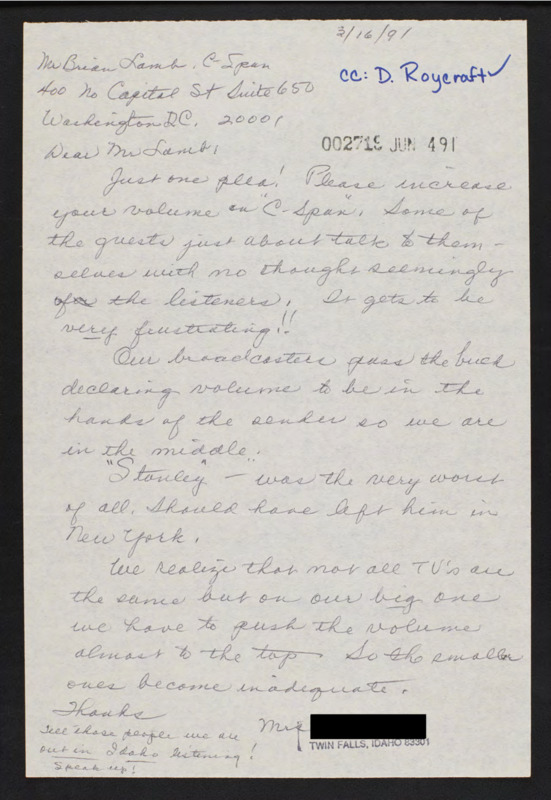 3/16/91
Mr Brian Lamb, C-Span
400 No Capital St Suite 650
Washington D.C. 20001
cc: D. Roycraft ✓
002719 JUN 491
Dear Mr Lamb,
Just one plea! Please increase
your volume on "C-Span". Some of
the guests just about talk to them-
selves with no thought seemingly
of the listeners. It gets to be
very frustrating!!
Our broadcasters pass the buck
declaring volume to be in the
hands of the sender so we are
in the middle.
"Stanley" - was the very worst
of all. Should have left him in
New York.
We realize that not all TV's are
the same but on our big one
we have to push the volume
almost to the top - So the smaller
ones become inadequate.
Thanks
Tell those people we are
out in Idaho listening!
Speak up!
Mrs
TWIN FALLS, IDAHO 83301